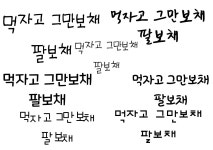 먹자고 그만보채
먹자고 그만보채
팔보채
팔보채
먹자고 그만보채
팔보채
먹자고 그만보채
먹자고 그만보채
팔보채
팔보채
먹자고 그만보채
먹자고 그만보채
팔보채
팔보채